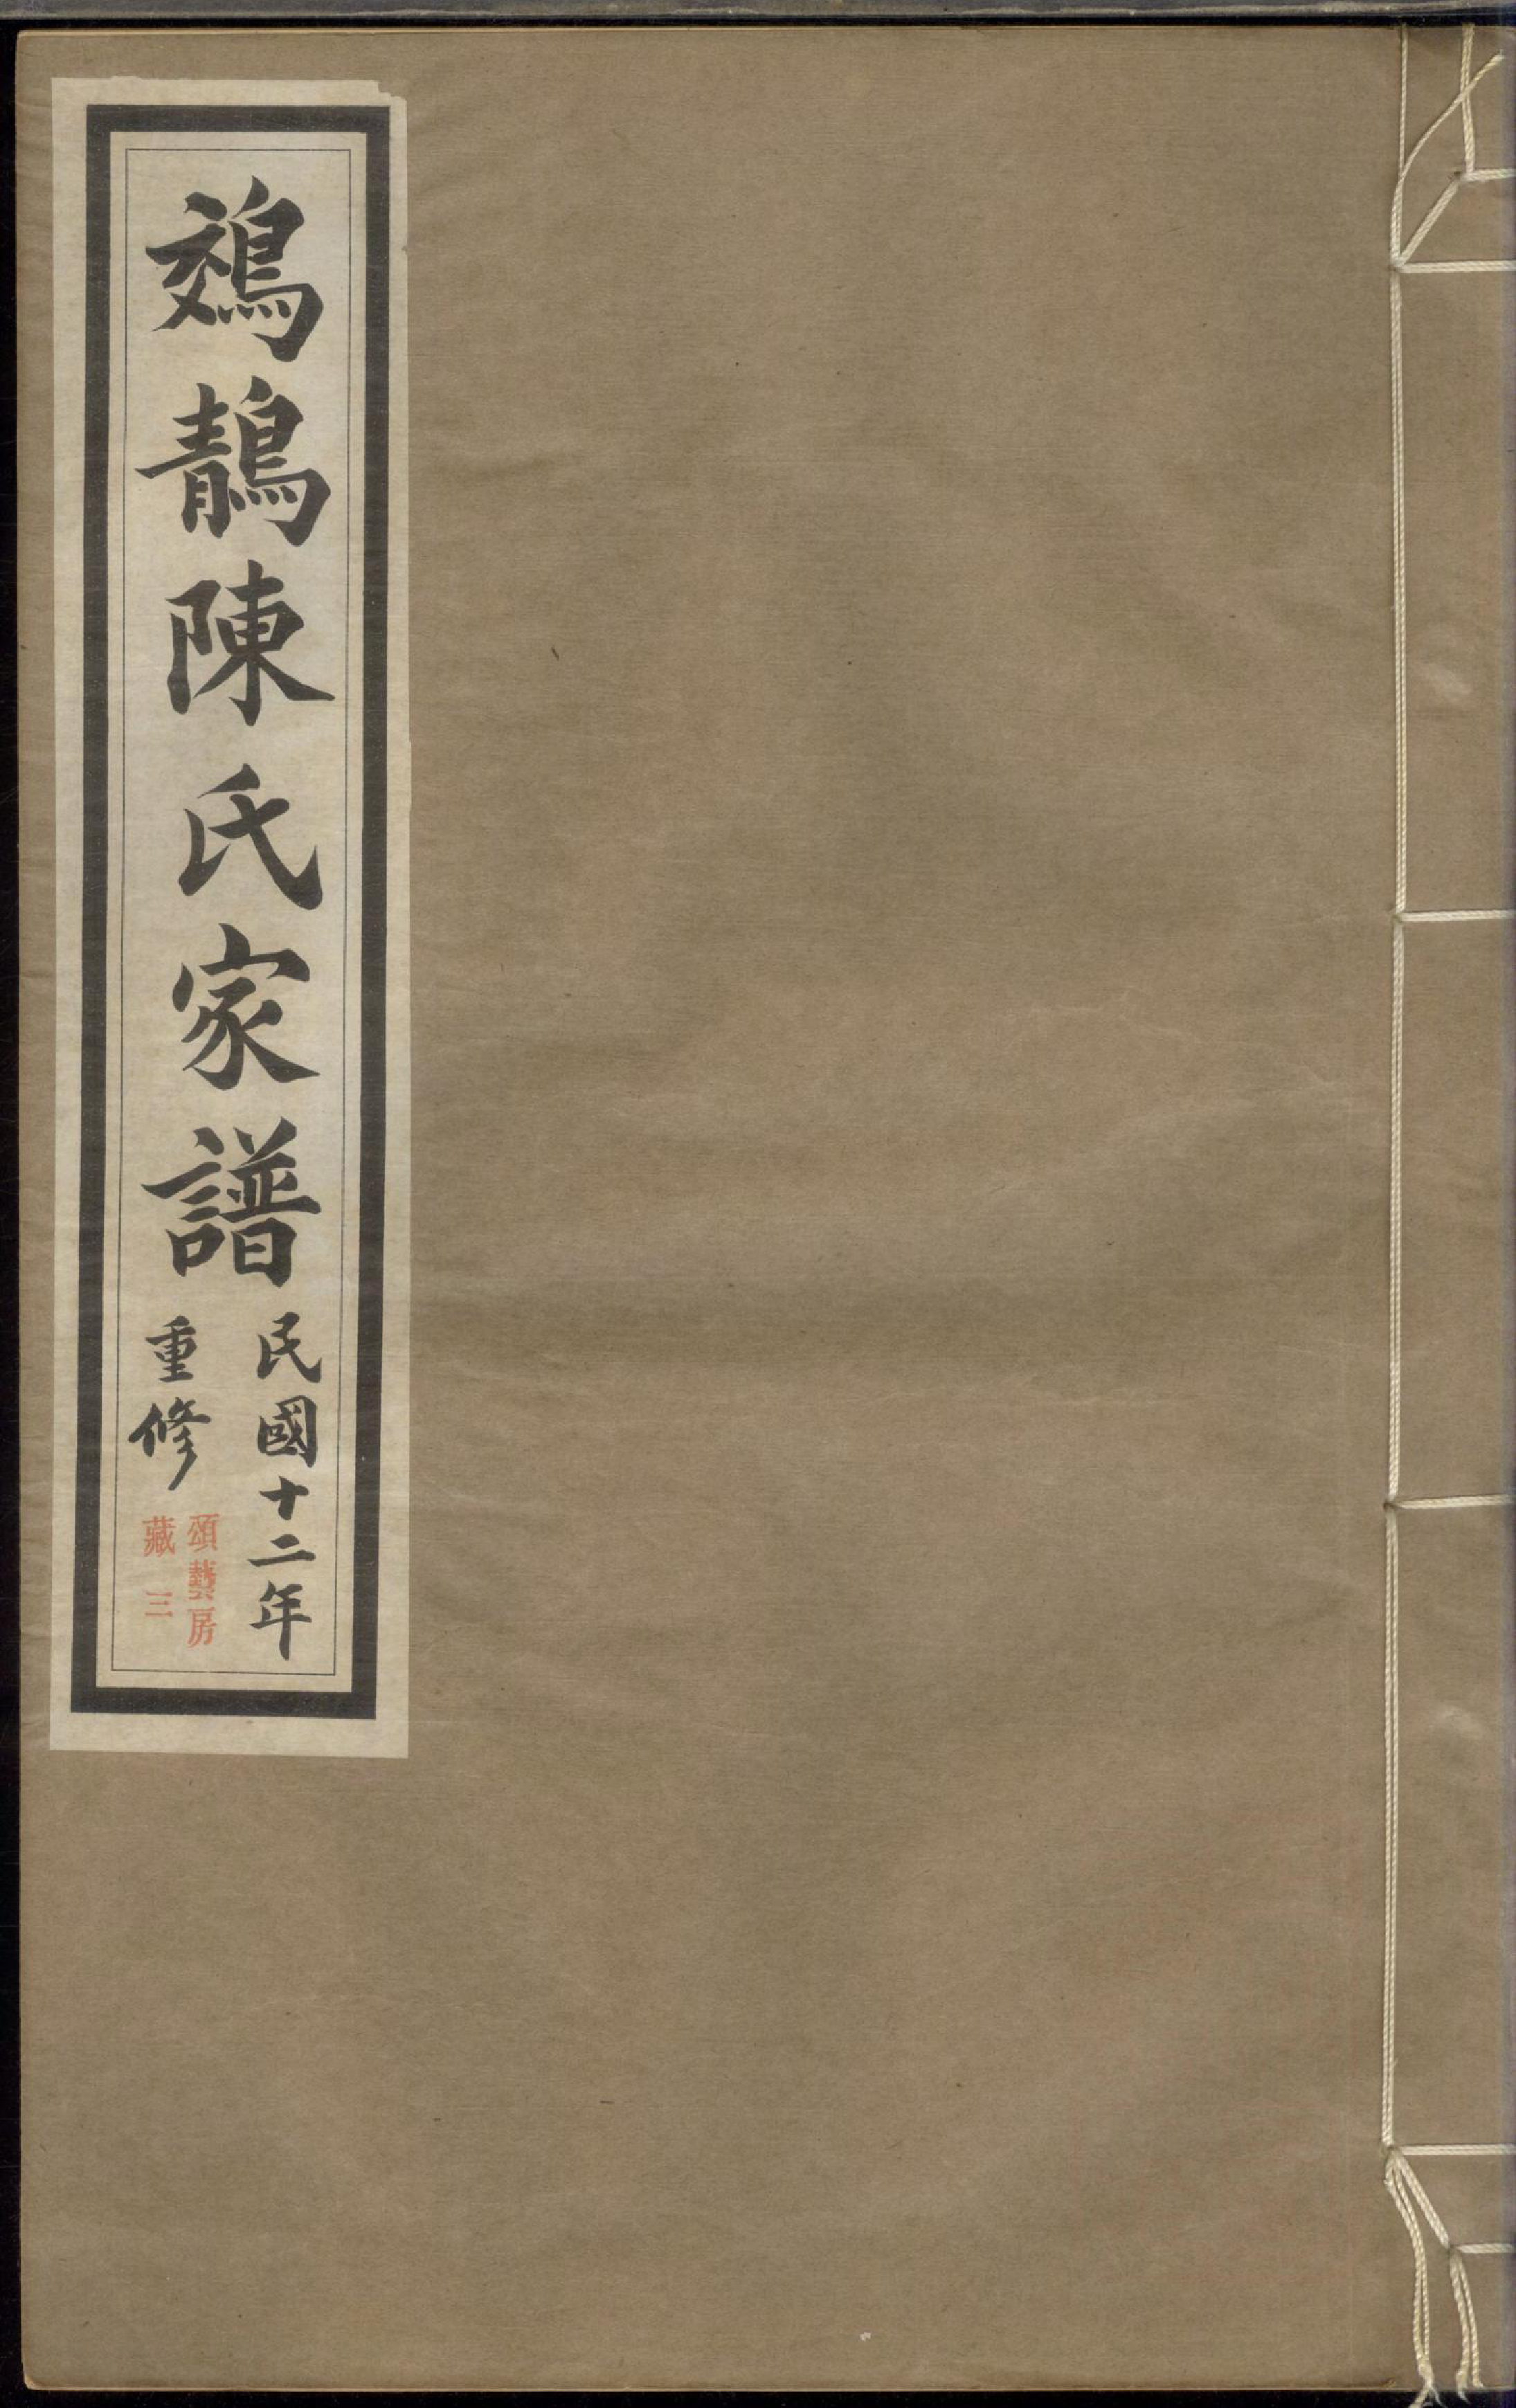 鵁鶄陳氏家譜
民國十二年
重修
頌藝房
藏三